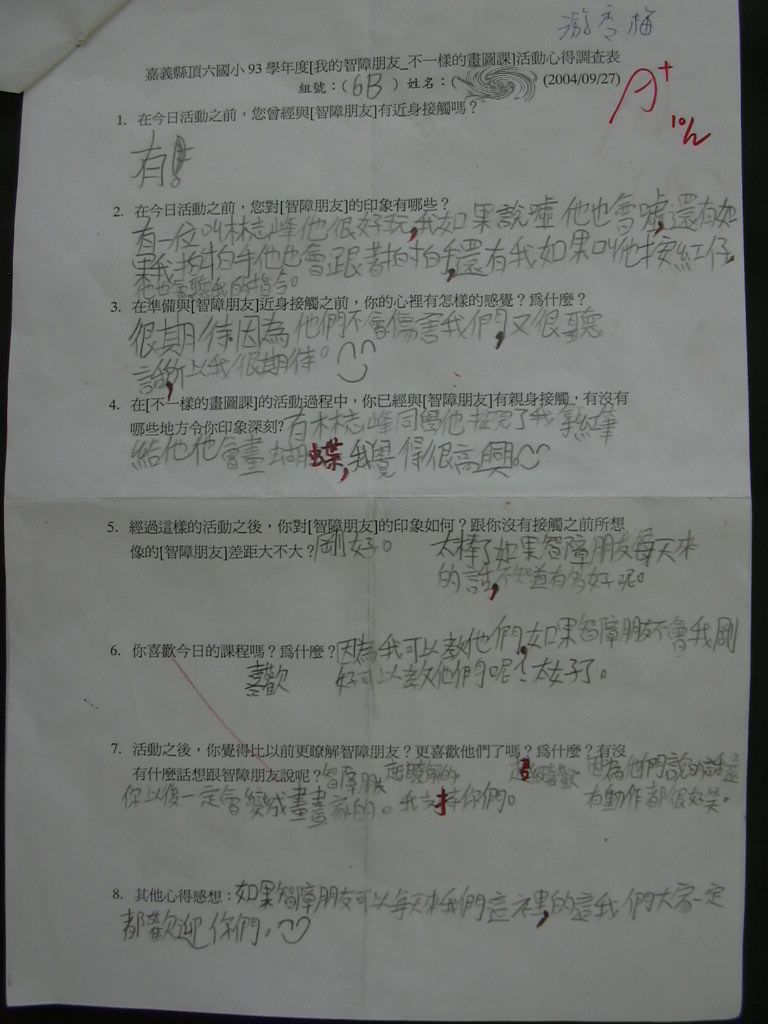 嘉義縣頂六國小93學年度[我的智障朋友_不一樣的畫圖課]活動心得調查表
組號：(6B) 姓名：( (2004/09/27)
A+
10/2
1. 在今日活動之前，您曾經與[智障朋友]有近身接觸嗎？
有!
2. 在今日活動之前，您對[智障朋友]的印象有哪些？
有一位叫林志峰他很好玩,我如果說噓他也會噓,還有如
果我拍拍手他也會跟著拍拍手,還有我如果叫他按紅仔,
他也會聽我的指令。
3. 在準備與[智障朋友]近身接觸之前，你的心裡有怎樣的感覺？爲什麼？
很期待因為他們不會傷害我們,又很聽
話,所以我很期待。
4. 在[不一樣的畫圖課]的活動過程中，你已經與[智障朋友]有親身接觸，有沒有
哪些地方令你印象深刻?有林志峰同學他 了我拿紅筆
給他他會畫蝴蝶,我覺得很高興。
5. 經過這樣的活動之後，你對[智障朋友]的印象如何？跟你沒有接觸之前所想
像的[智障朋友]差距大不大？剛好。 太棒了如果智障朋友每天來
的話,不知道有多好呢。
6. 你喜歡今日的課程嗎？爲什麼？因為我可以教他們,如果智障朋友不會我剛
喜歡 好可以教他們呢！太好了。
7. 活動之後，你覺得比以前更瞭解智障朋友？更喜歡他們了嗎？爲什麼？有沒
有什麼話想跟智障朋友說呢？智障朋友 瞭解的 喜歡 因為他們說的話還
你以後一定會變成畫畫家的。我支持你們。 有動作都很好笑。
8. 其他心得感想：如果智障朋友可以每天來我們這裡,的話我們大家一定
都歡迎你們。